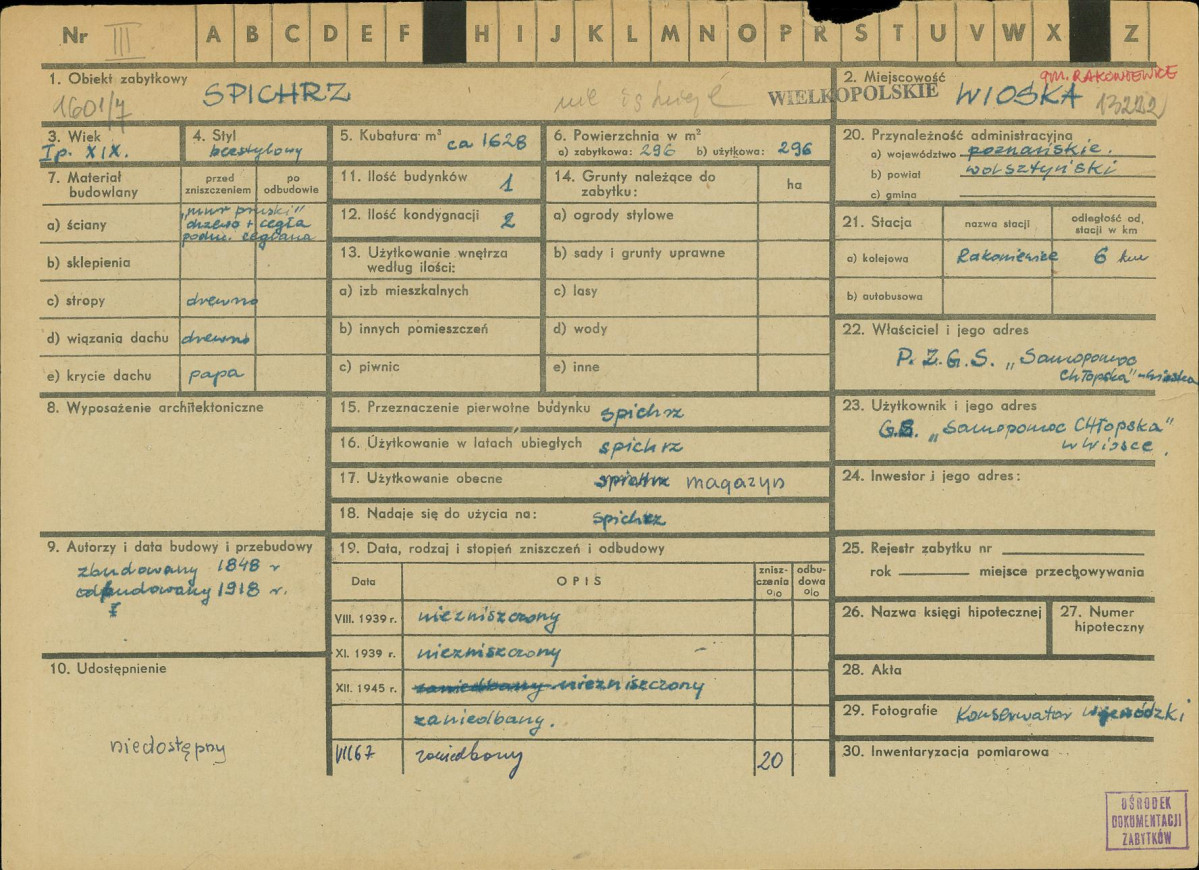 Nr III A B C D E F H I J K L M N O P R S T U V W X Z
1. Obiekt zabytkowy
1601/7
SPICHRZ
nie istnieje
2. Miejscowość
gm. RAKONIEWICE
WIELKOPOLSKIE WIOSKA 13222
3. Wiek
I p. XIX.
4. Styl
bezstylowy
5. Kubatura m³ ca 1628
6. Powierzchnia w m²
a) zabytkowa: 296 b) użytkowa: 296
7. Materiał budowlany
przed zniszczeniem
po odbudowie
a) ściany
„mur pruski”
drzewo + cegła
podm. ceglana
b) sklepienia
c) stropy drewno
d) wiązania dachu drewno
e) krycie dachu papa
8. Wyposażenie architektoniczne
9. Autorzy i data budowy i przebudowy
zbudowany 1848 r
odbudowany 1918 r.
10. Udostępnienie
niedostępny
11. Ilość budynków 1
12. Ilość kondygnacji 2
13. Użytkowanie wnętrza
według ilości:
a) izb mieszkalnych
b) innych pomieszczeń
c) piwnic
14. Grunty należące do
zabytku:
ha
a) ogrody stylowe
b) sady i grunty uprawne
c) lasy
d) wody
e) inne
15. Przeznaczenie pierwotne budynku spichrz
16. Użytkowanie w latach ubiegłych spichrz
17. Użytkowanie obecne spichrz magazyn
18. Nadaje się do użycia na: spichrz
19. Data, rodzaj i stopień zniszczeń i odbudowy
Data
OPIS
znisz-
czenia
o/o
odbu-
dowa
o/o
VIII. 1939 r. niezniszczony
XI. 1939 r. niezniszczony
XII. 1945 r. zaniedbany niezniszczony
zaniedbany.
VII 67 zaniedbany 20
20. Przynależność administracyjna
a) województwo poznańskie.
b) powiat wolsztyński
c) gmina
21. Stacja
nazwa stacji
odległość od,
stacji w km
a) kolejowa Rakoniewice 6 km
b) autobusowa
22. Właściciel i jego adres
P.Z.G.S. „Samopomoc
Chłopska”
23. Użytkownik i jego adres
G.S. „Samopomoc Chłopska”
w Wiosce.
24. Inwestor i jego adres:
25. Rejestr zabytku nr
rok miejsce przechowywania
26. Nazwa księgi hipotecznej
27. Numer
hipoteczny
28. Akta
29. Fotografie Konserwator wojewódzki
30. Inwentaryzacja pomiarowa
OŚRODEK
DOKUMENTACJI
ZABYTKÓW